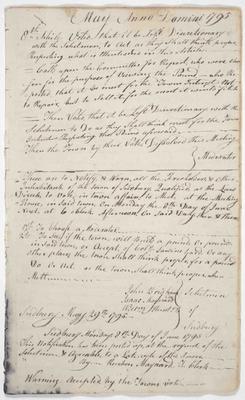 May Anno Domini 1795
8th Which Voted that it be Left Discretionary
with the Selectmen, to act as they Shall think proper
Respecting what is Mentioned in this Article.
Calls upon the Committee for Report who were Chosen
for the purpose of Viewing the Pound who Re-
ported that it be most for the Towns
to Repair, but to Sell it for the most it
Then Voted that it be Left Discretionary with the
Selectmen To Do as they Shall think most for the Towns
Interest Respecting that
Then the Town by their Vote Dissolved this Meeting
Moderator
These are to Notify & Warn all the Freeholders & other
Inhabitants of the town of Sudbury, Qualified, as the Law
Directs, to Vote, in town affairs, to Meet, at the Meeting
House, in Said town, On Monday the 8th Day of June
Next, at 6 oClock, Afternoon, On Said Day then & there
1st To Choose a Moderator
To See if the town, will Build a pound or pounds
in Said town, or accept, of
other place the town Shall think proper for a pound
Do or Act as the town Shall think proper
John Brigham
Isaac Maynard
Selectmen
of
Sudbury
Sudbury May 29th 1795
Sudbury Monday 8th Day of June 1795
This Notification has been posted up at the request of the
Selectmen, & Agreeable, to a Late Vote of the Town
By Reuben Maynard T. Clerk
Warning accepted by the Towns vote